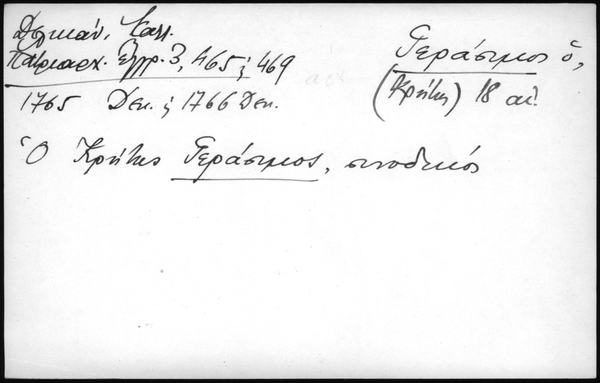 Δελικάν, Καλλ.
Πατριαρχ. Έγγρ. 3, 465 ἑ 469
1765 Δεκ. ἑ 1766 Δεκ.
Γεράσιμος ὁ,
(Κρήτης) 18 αἰ.
Ὁ Κρήτης Γεράσιμος, συνοδικός